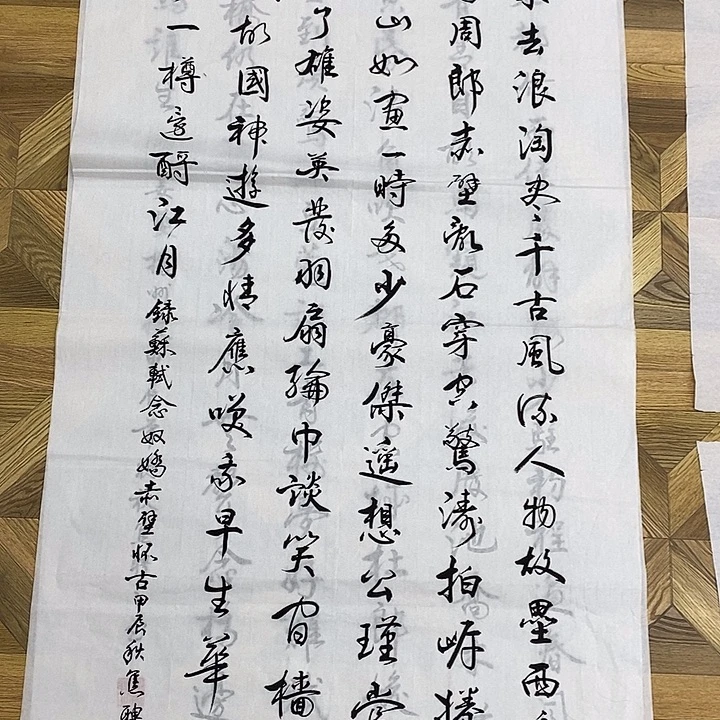 去浪淘尽千古風流人物故壘西
周郎赤壁亂石穿空驚濤拍岸捲
山如畫一時多少豪傑遥想公瑾當
了雄姿英發羽扇綸巾談笑間檣
故國神遊多情應笑我早生華
一樽還酹江月 錄蘇軾念奴嬌赤壁怀古甲辰秋焦